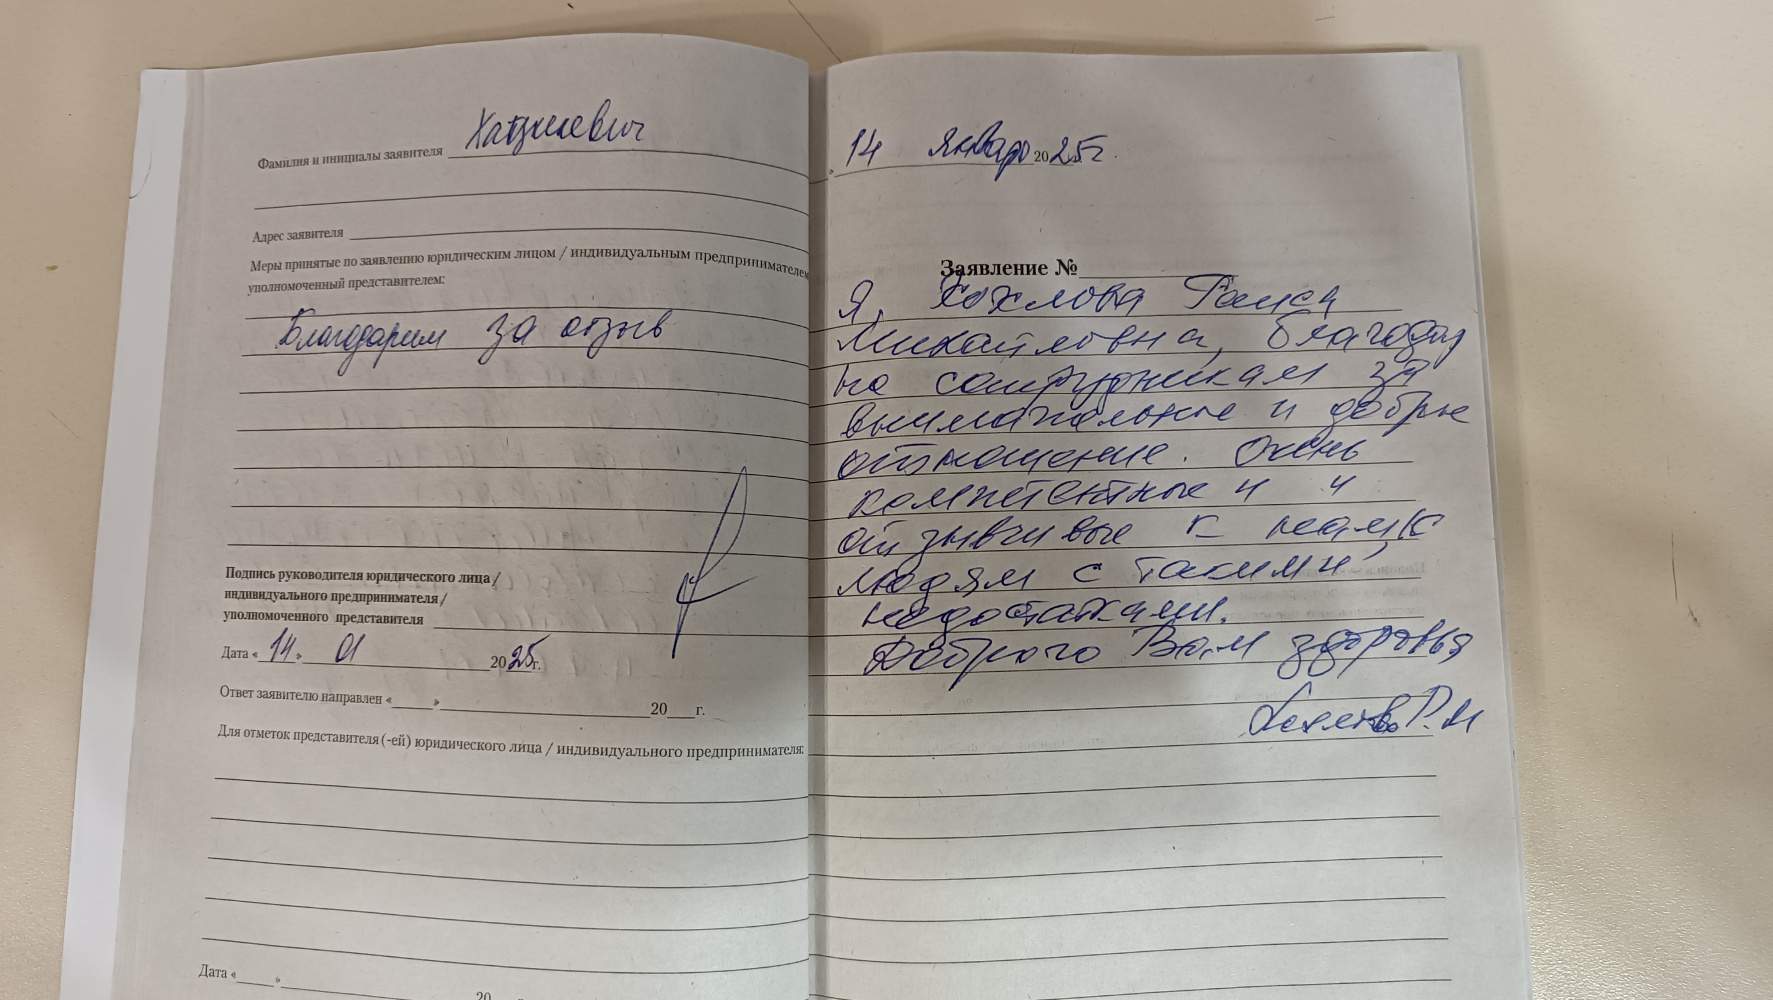 Фамилия и инициалы заявителя Хацкевич
Адрес заявителя
Меры принятые по заявлению юридическим лицом / индивидуальным предпринимателем
уполномоченный представителем:
Благодарим за отзыв
Подпись руководителя юридического лица /
индивидуального предпринимателя /
уполномоченного представителя
Дата «14» 01 2025г.
Ответ заявителю направлен «____» 20___г.
Для отметок представителя (-ей) юридического лица / индивидуального предпринимателя:
Дата «____» 20
» 14 января 2025г.
Заявление №
Я, Хохлова Раиса
Михайловна, благодар
на сотрудникам за
внимательные и добрые
отношение. Очень
компетентные и и
отзывчивые к нам, к
людям с такими
недостатками.
Доброго Вам здоровья
Хохлова Р.М